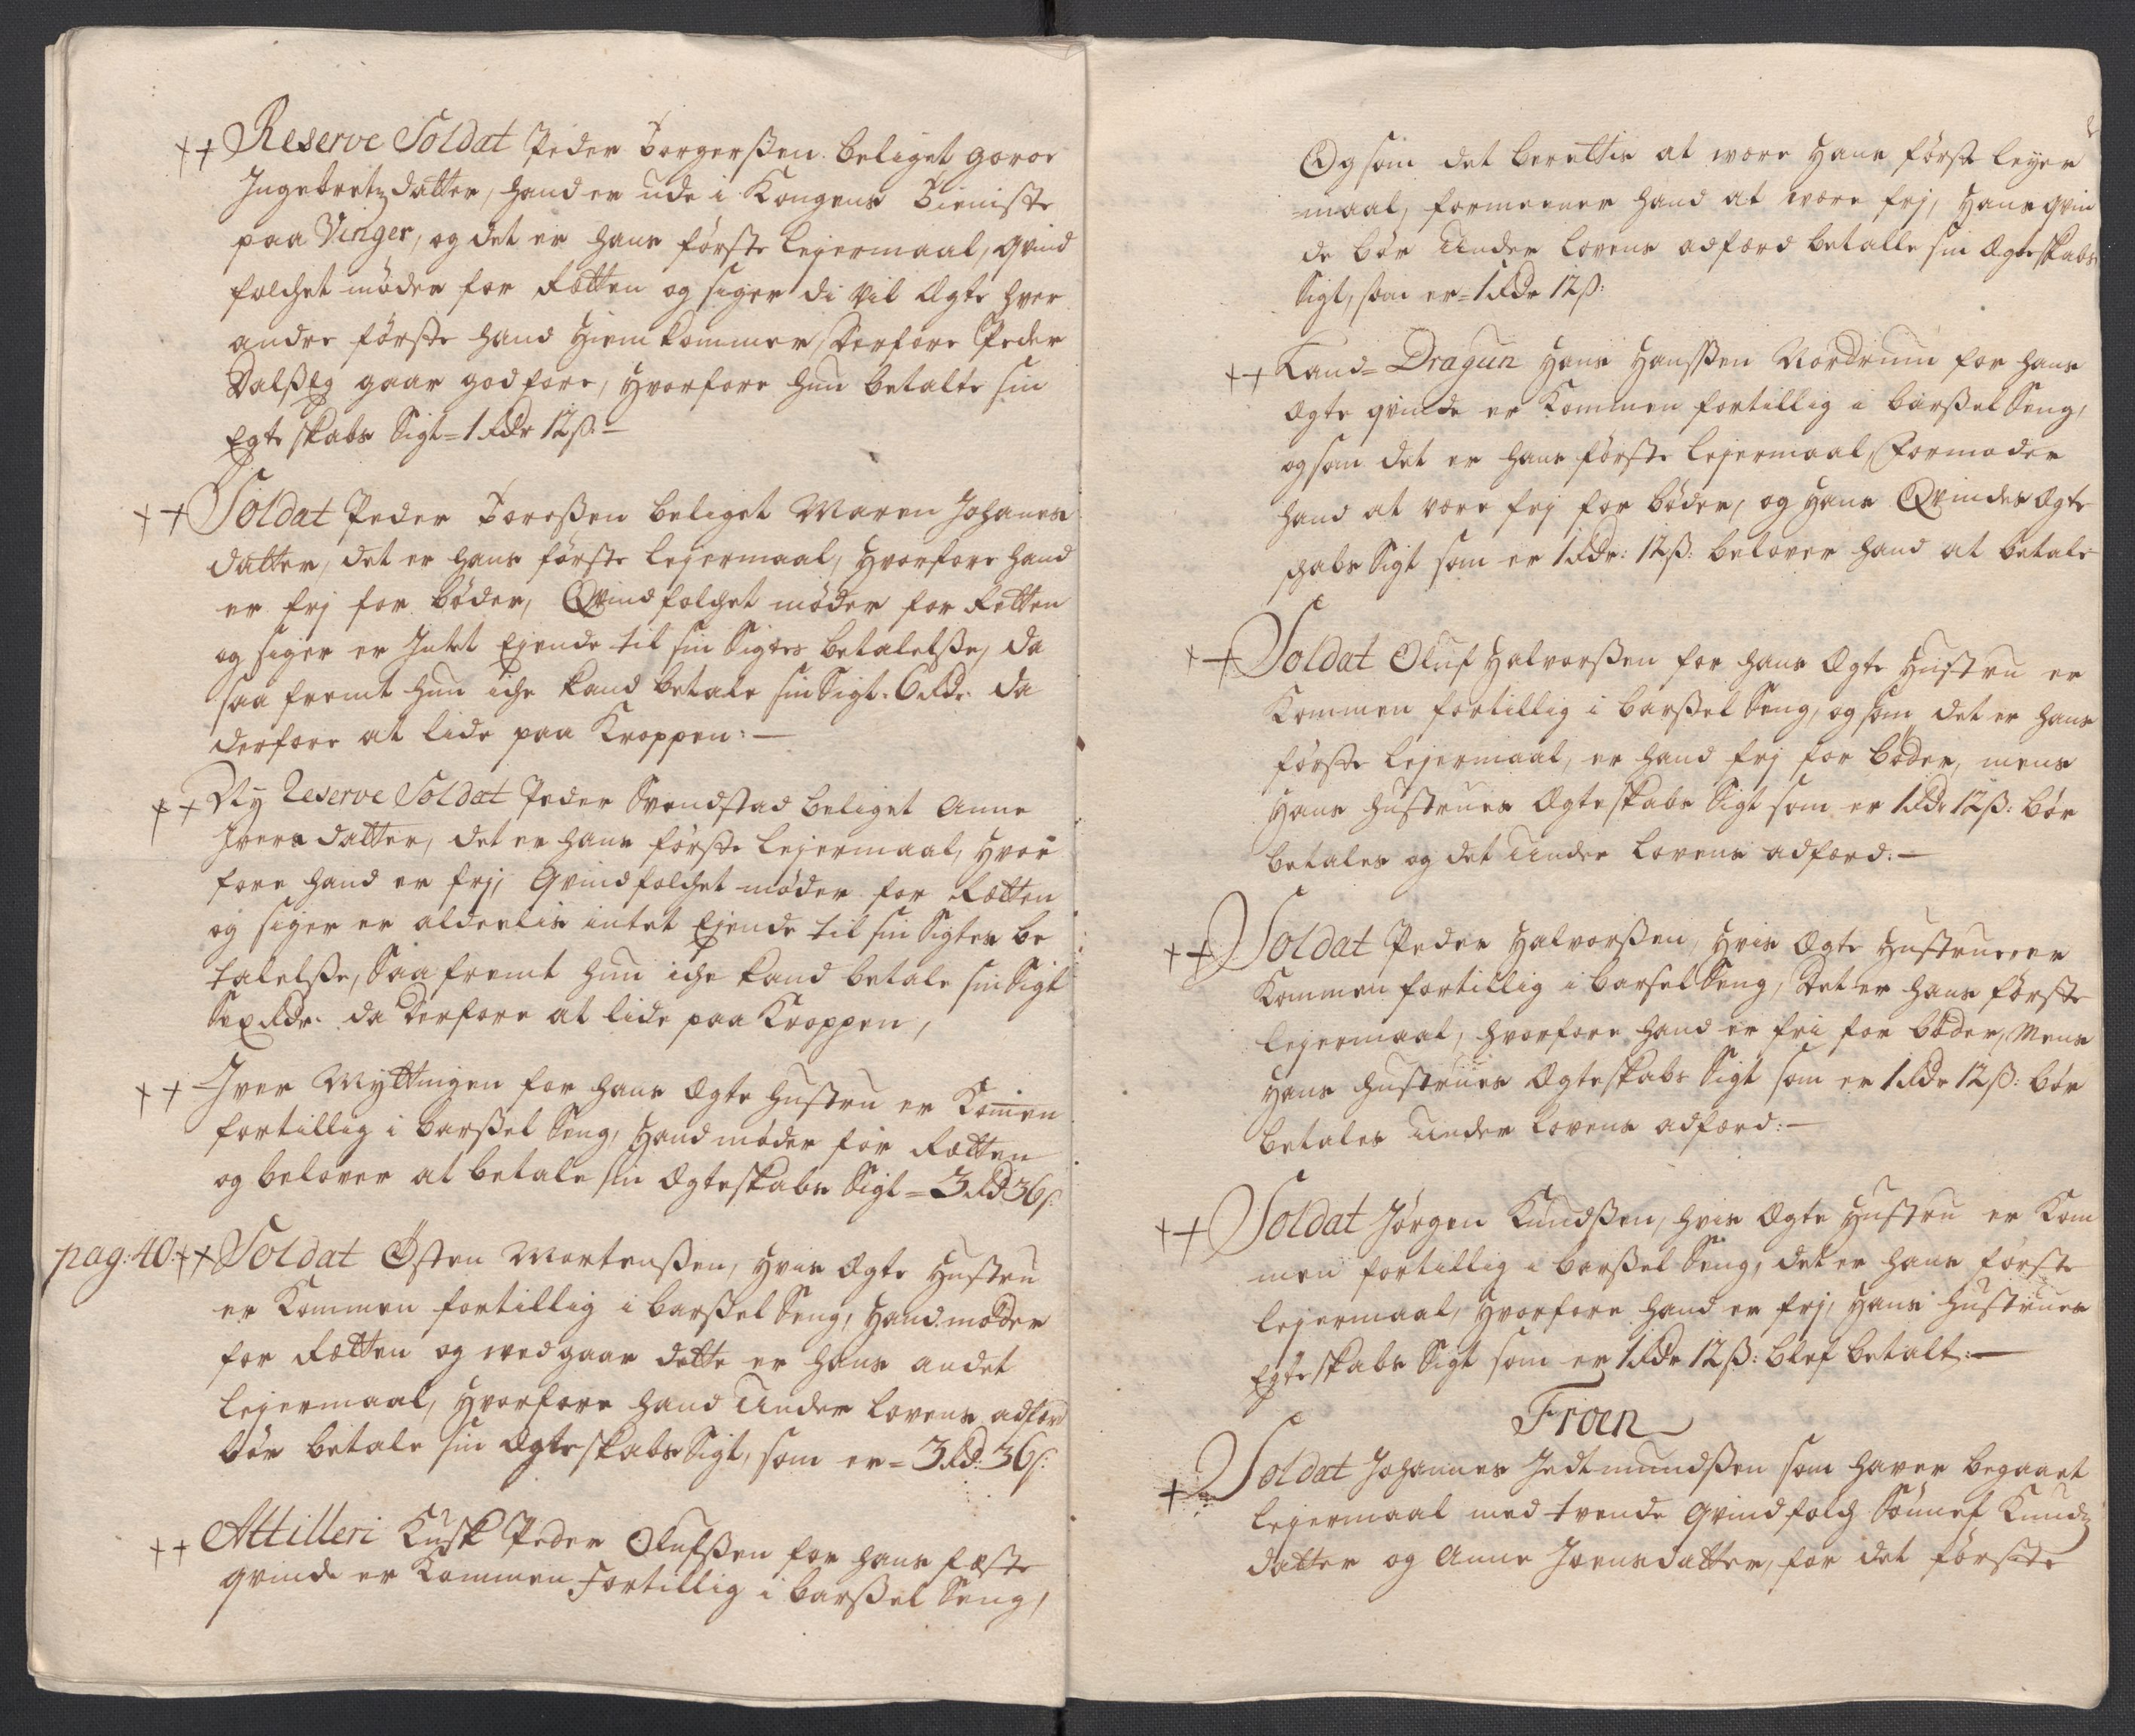 ++ Reserve Soldat Peder Torgerßen beliget goroe
Ingebretzdatter, hand er ude i Kongens Tieniste
paa Vinger, og det er hans förste lejermaal, qvind
folchet möder for Rætten og siger di vil ægte hver
andre förste hand hiem kommer, derfore Peder
Dalßeg gaar godfore, hvorfore hun betalte sin
Egteskabs Sigt = 1 Rdr 12ß: —
++ Soldat Peder Toreßen beliget Maren Johanes
datter, det er hans förste lejermaal, hvorfore hand
er frj for böder, Qvindfolchet möder for Retten
og siger er Intet Ejende til sin Sigtes betalelße, da
saa fremt hun iche kand betale sin Sigt. 6 Rdr. da
derfore at lide paa Kroppen: —
++ Ny Reserve Soldat Peder Svendstad beliget Anne
Ivers datter, det er hans förste lejermaal, hvor
fore hand er frj, Qvindfolchet möder for Rætten
og siger er alderlis intet Ejende til sin Sigtes be
talelße, Saa fremt hun iche kand betale sin Sigt
Sex Rdr. da derfore at lide paa Kroppen,
++ Iver Myttingen for hans Ægte hustru er Komen
fortillig i barßel Seng, hand möder for Rætten
og belover at betale sin Ægteskabs Sigt = 3 Rd 36ß:
pag: 40: ++ Soldat Östen Mortenßen, hvis Ægte hustru
er Kommen fortillig i barßel Seng, hand möder
for Rætten og vedgaar dette er hans andet
lejermaal, hvorfore hand Under lovens adfærd
bör betale sin Ægteskabs Sigt, som er = 3 Rd: 36ß:
++ Attilleri Kusk Peder Olufßen for hans fæste
qvinde er Kommen Fortillig i barßel Seng,
Og som det berettis at være hans först leyer
=maal, formeener hand at være frj, hans qvin
de bör Under lovens adfærd betalle sin Ægteskabs
Sigt, som er = 1 Rdr 12ß:
++ Land= Dragun Hans Hanßen Nordrum for hans
Ægte qvinde er Kommen fortillig i barßel Seng,
og som det er hans förste lejermaal, Formoder
hand at være frj for böder, og hans Qvindes Ægte
schabs Sigt som er 1 Rdr: 12ß: belover hand at betale
++ Soldat Oluf Halvorßen for hans Ægte Hustru er
Kommen fortillig i barßel Seng, og som det er hans
förste lejermaal, er hand frj for böder, mens
hans hustrues Ægteskabs Sigt som er 1 Rdr 12ß: bör
betales og det Under lovens adfærd: —
++ Soldat Peder Halvorßen, hvis Ægte Hustrue er
Kommen fortillig i barsel Seng, det er hans förste
lejermaal, hvorfore hand er fri for böder, Mens
hans hustrues Ægteskabs Sigt som er 1 Rdr 12ß: bör
betales Under lovens adfærd: —
++ Soldat Jörgen Knudßen, hvis Ægte Hustru er Kom
men fortillig i barßel Seng, det er hans förste
lejermaal, hvorfore hand er frj, hans hustrues
Egteskabs Sigt som er 1 Rdr 12ß: blef betalt: —
Froen
+ Soldat Johannes Jedtmundßen som haver begaaet
lejermaal med tvende qvindfolch Sönnef Knudz
datter og Anne Joensdatter, for det förste